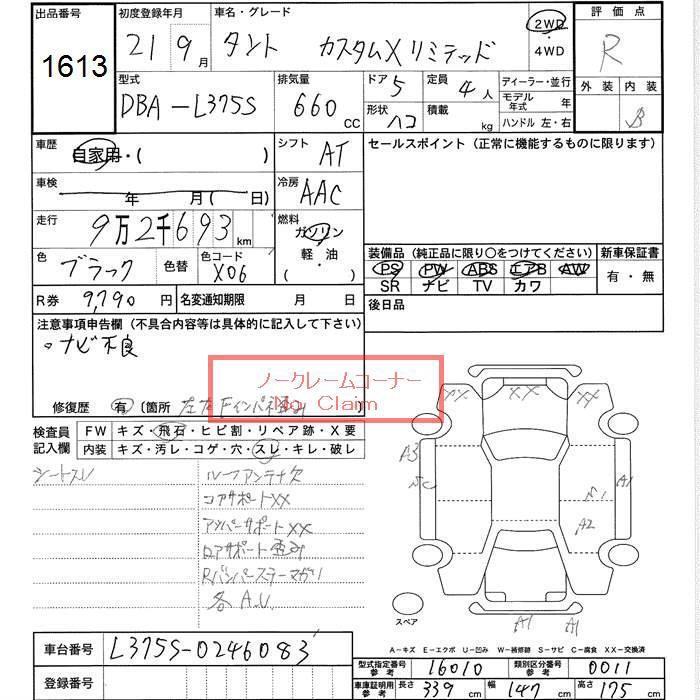 出品番号
1613
初度登録年月
21 9月
車名・グレード
タント カスタムXリミテッド
2WD
・
4WD
評価点
R
外装 内装
B
型式
DBA-L375S
排気量
660 cc
ドア 5
形状 ハコ
定員 4人
積載 kg
ディーラー・並行
モデル年式 年
ハンドル 左・右
車歴
自家用・( )
シフト AT
車検
年 月( 日)
冷房 AAC
走行
9万2千693 km
燃料
ガソリン
軽・油
( )
色 ブラック
色替
色コード X06
R券 9,790 円
名変通知期限 月 日
セールスポイント(正常に機能するものに限ります)
装備品(純正品に限り○をつけてください)
PS PW ABS エアB AW
SR ナビ TV カワ
新車保証書
有・無
後日品
注意事項申告欄(不具合内容等は具体的に記入して下さい)
。ナビ不良
ノークレームコーナー
No Claim
修復歴 有 〔箇所 左右Fインパネ歪み
検査員記入欄
FW キズ・飛石・ヒビ割・リペア跡・X要
内装 キズ・汚レ・コゲ・穴・スレ・キレ・破レ
シートスレ
ルーフアンテナ欠
コアサポートXX
アッパーサポートXX
ロアサポート歪み
Rバンパーステーマガリ
各A.U
XX XX XX
A3
A1
A2
A1 A1
スペア
A-キズ E-エクボ U-凹み W-補修跡 S-サビ C-腐食 XX-交換済
車台番号 L375S-0246083
登録番号
型式指定番号 参考 16010
類別区分番号 参考 0011
車庫証明用 参考 長さ 339 cm 幅 147 cm 高さ 175 cm